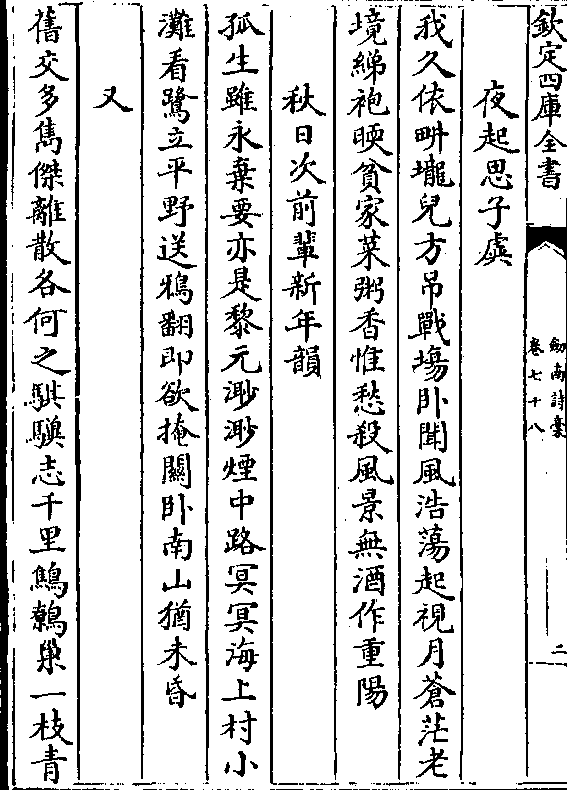 欽定四庫全書
劍南詩稾
卷七十八
二
夜起思子虡
我久依畊壠兒方弔戰塲卧聞風浩蕩起視月蒼茫老
境綈袍暝貧家菜粥香惟愁殺風景無酒作重陽
秋日次前輩新年韻
孤生雖永棄要亦是黎元渺渺煙中路冥冥海上村小
灘看鷺立平野送鴉翻即欲掩關卧南山猶未昏
又
舊交多雋傑離散各何之騏驥志千里鷦鷯巢一枝青